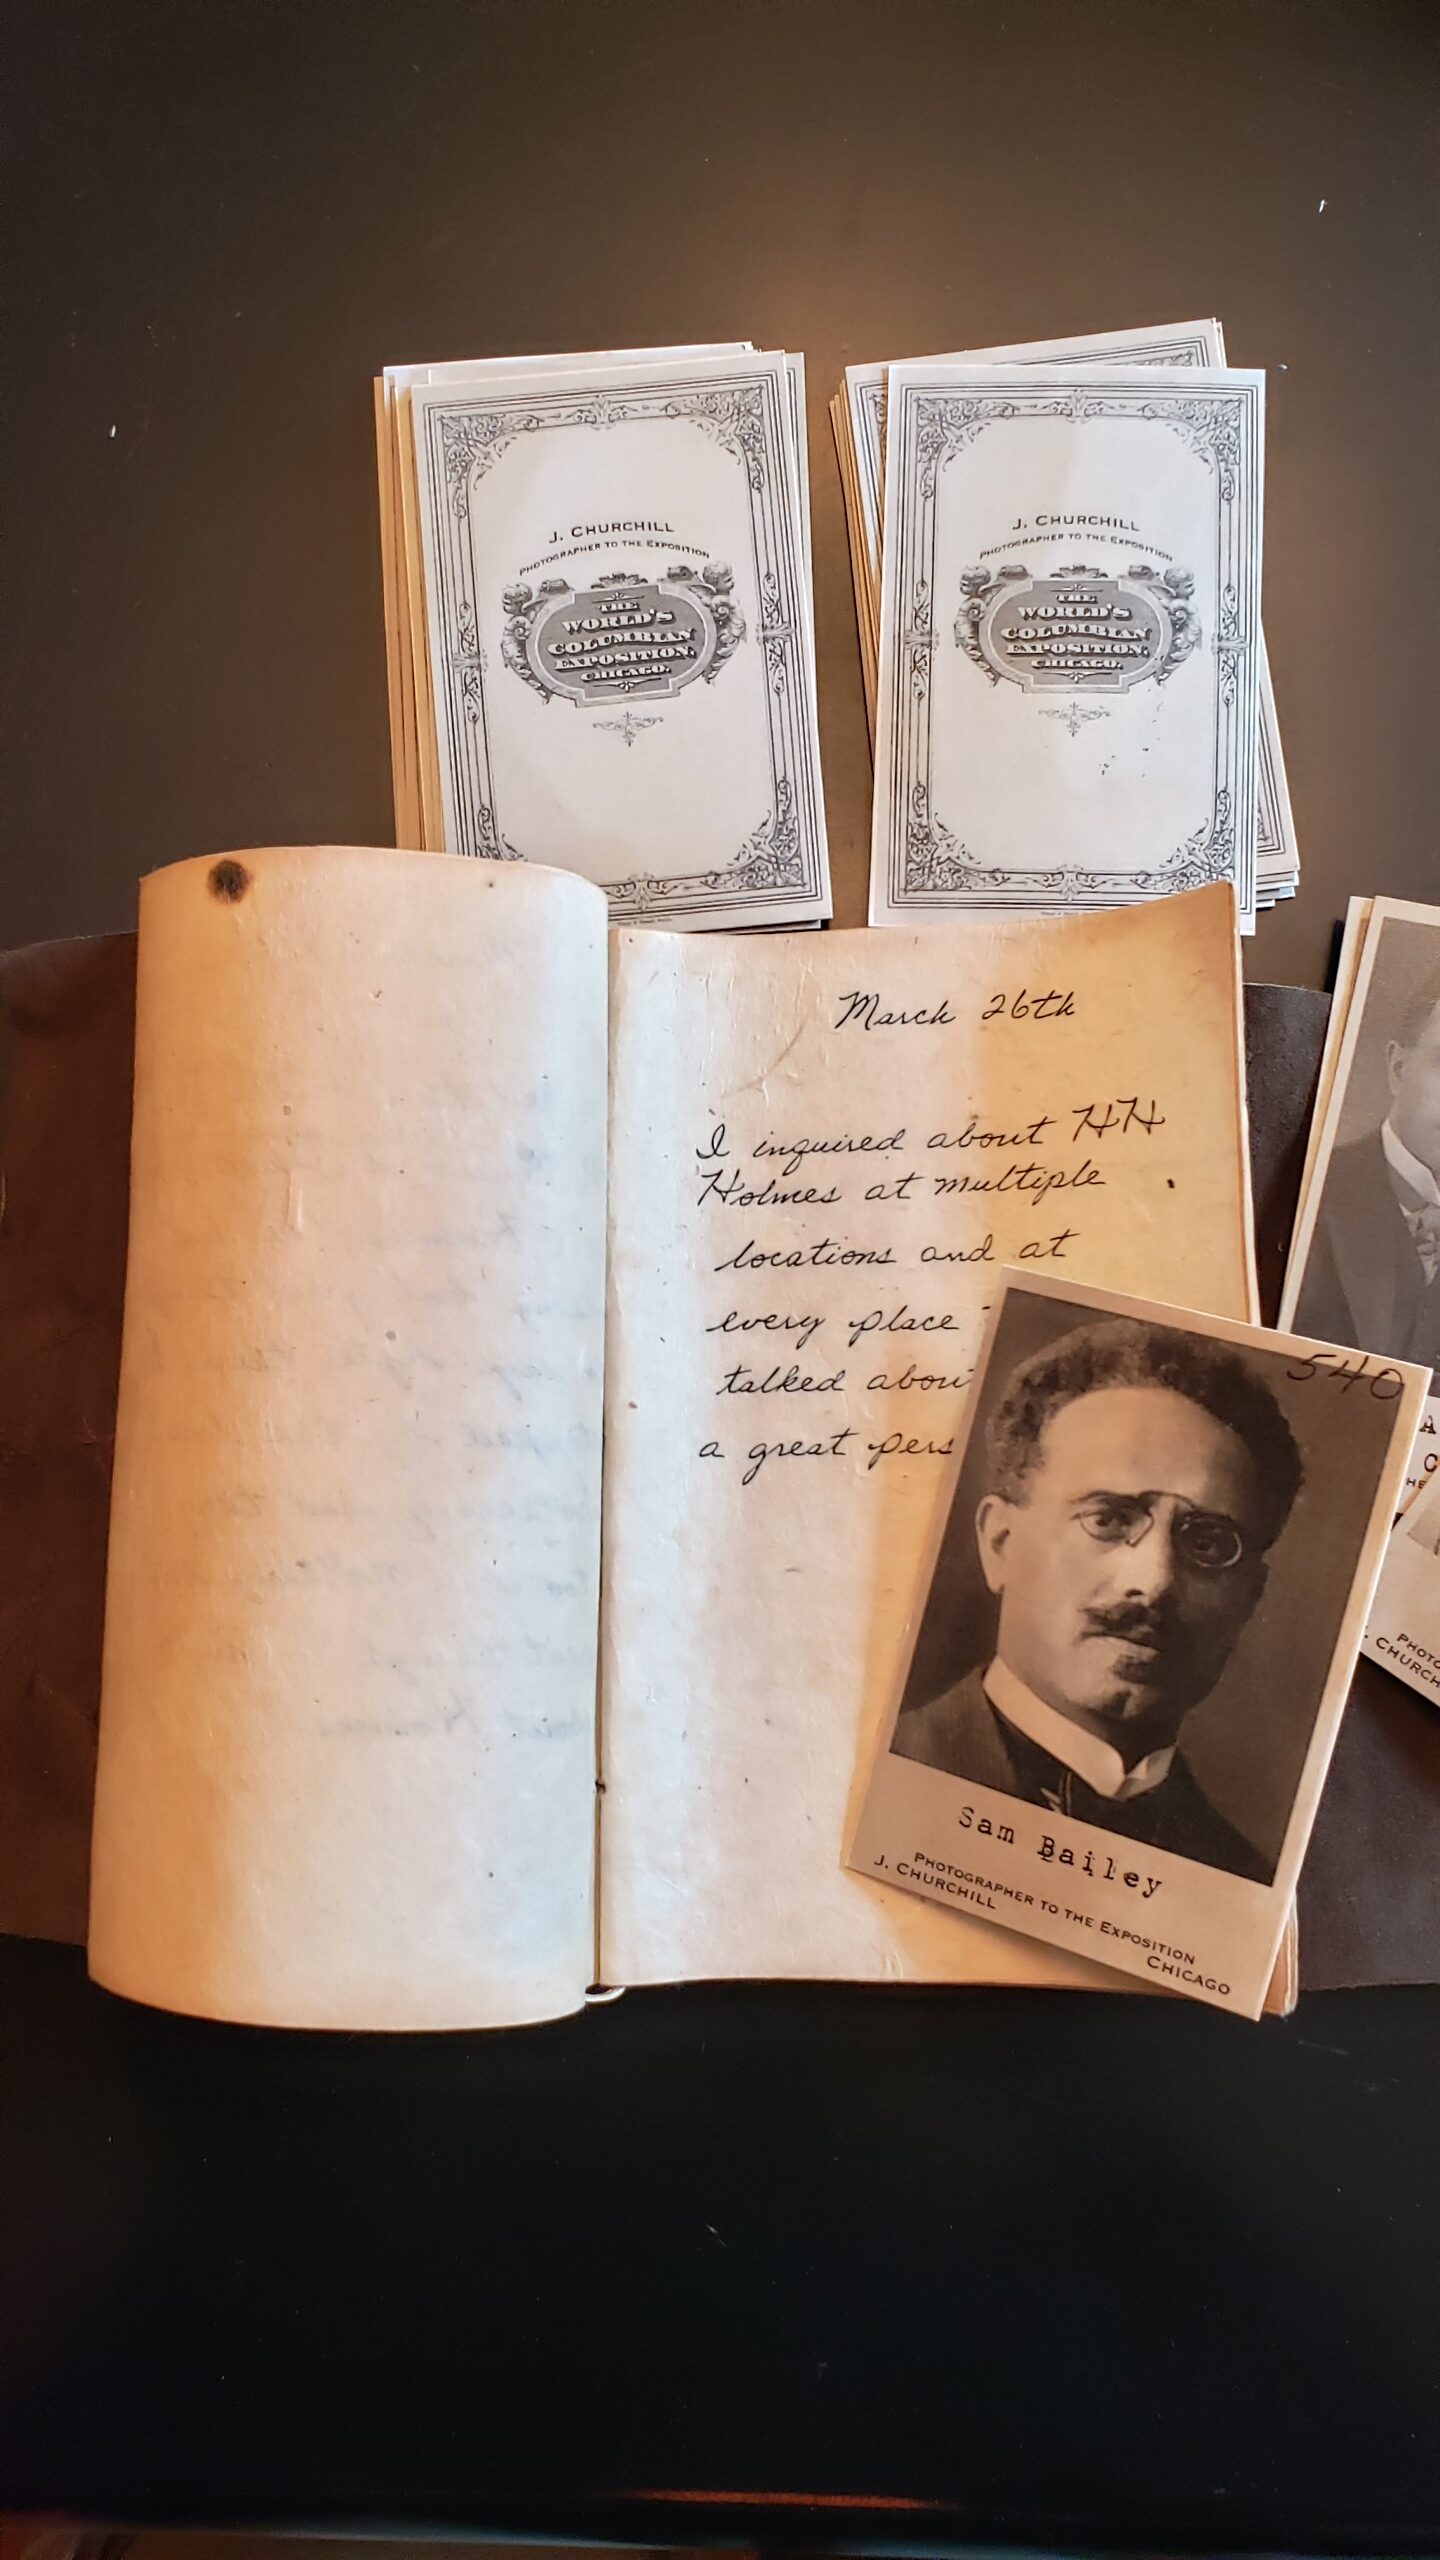 J. CHURCHILL
PHOTOGRAPHER TO THE EXPOSITION
THE
WORLD'S
COLUMBIAN
EXPOSITION,
CHICAGO.
J. CHURCHILL
PHOTOGRAPHER TO THE EXPOSITION
THE
WORLD'S
COLUMBIAN
EXPOSITION,
CHICAGO.
March 26th
I inquired about HH
Holmes at multiple
locations and at
every place
talked abou
a great pers
540
Sam Bailey
PHOTOGRAPHER TO THE EXPOSITION
J. CHURCHILL
CHICAGO
A
C
HE
PHOTO
J. CHURCH